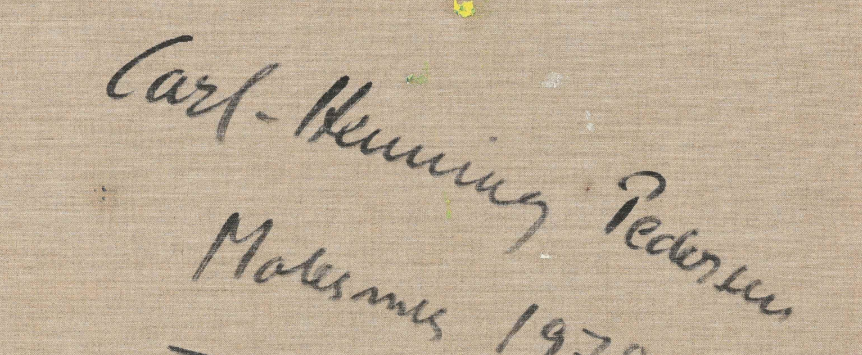 Carl-Henning Pedersen
Molesmes